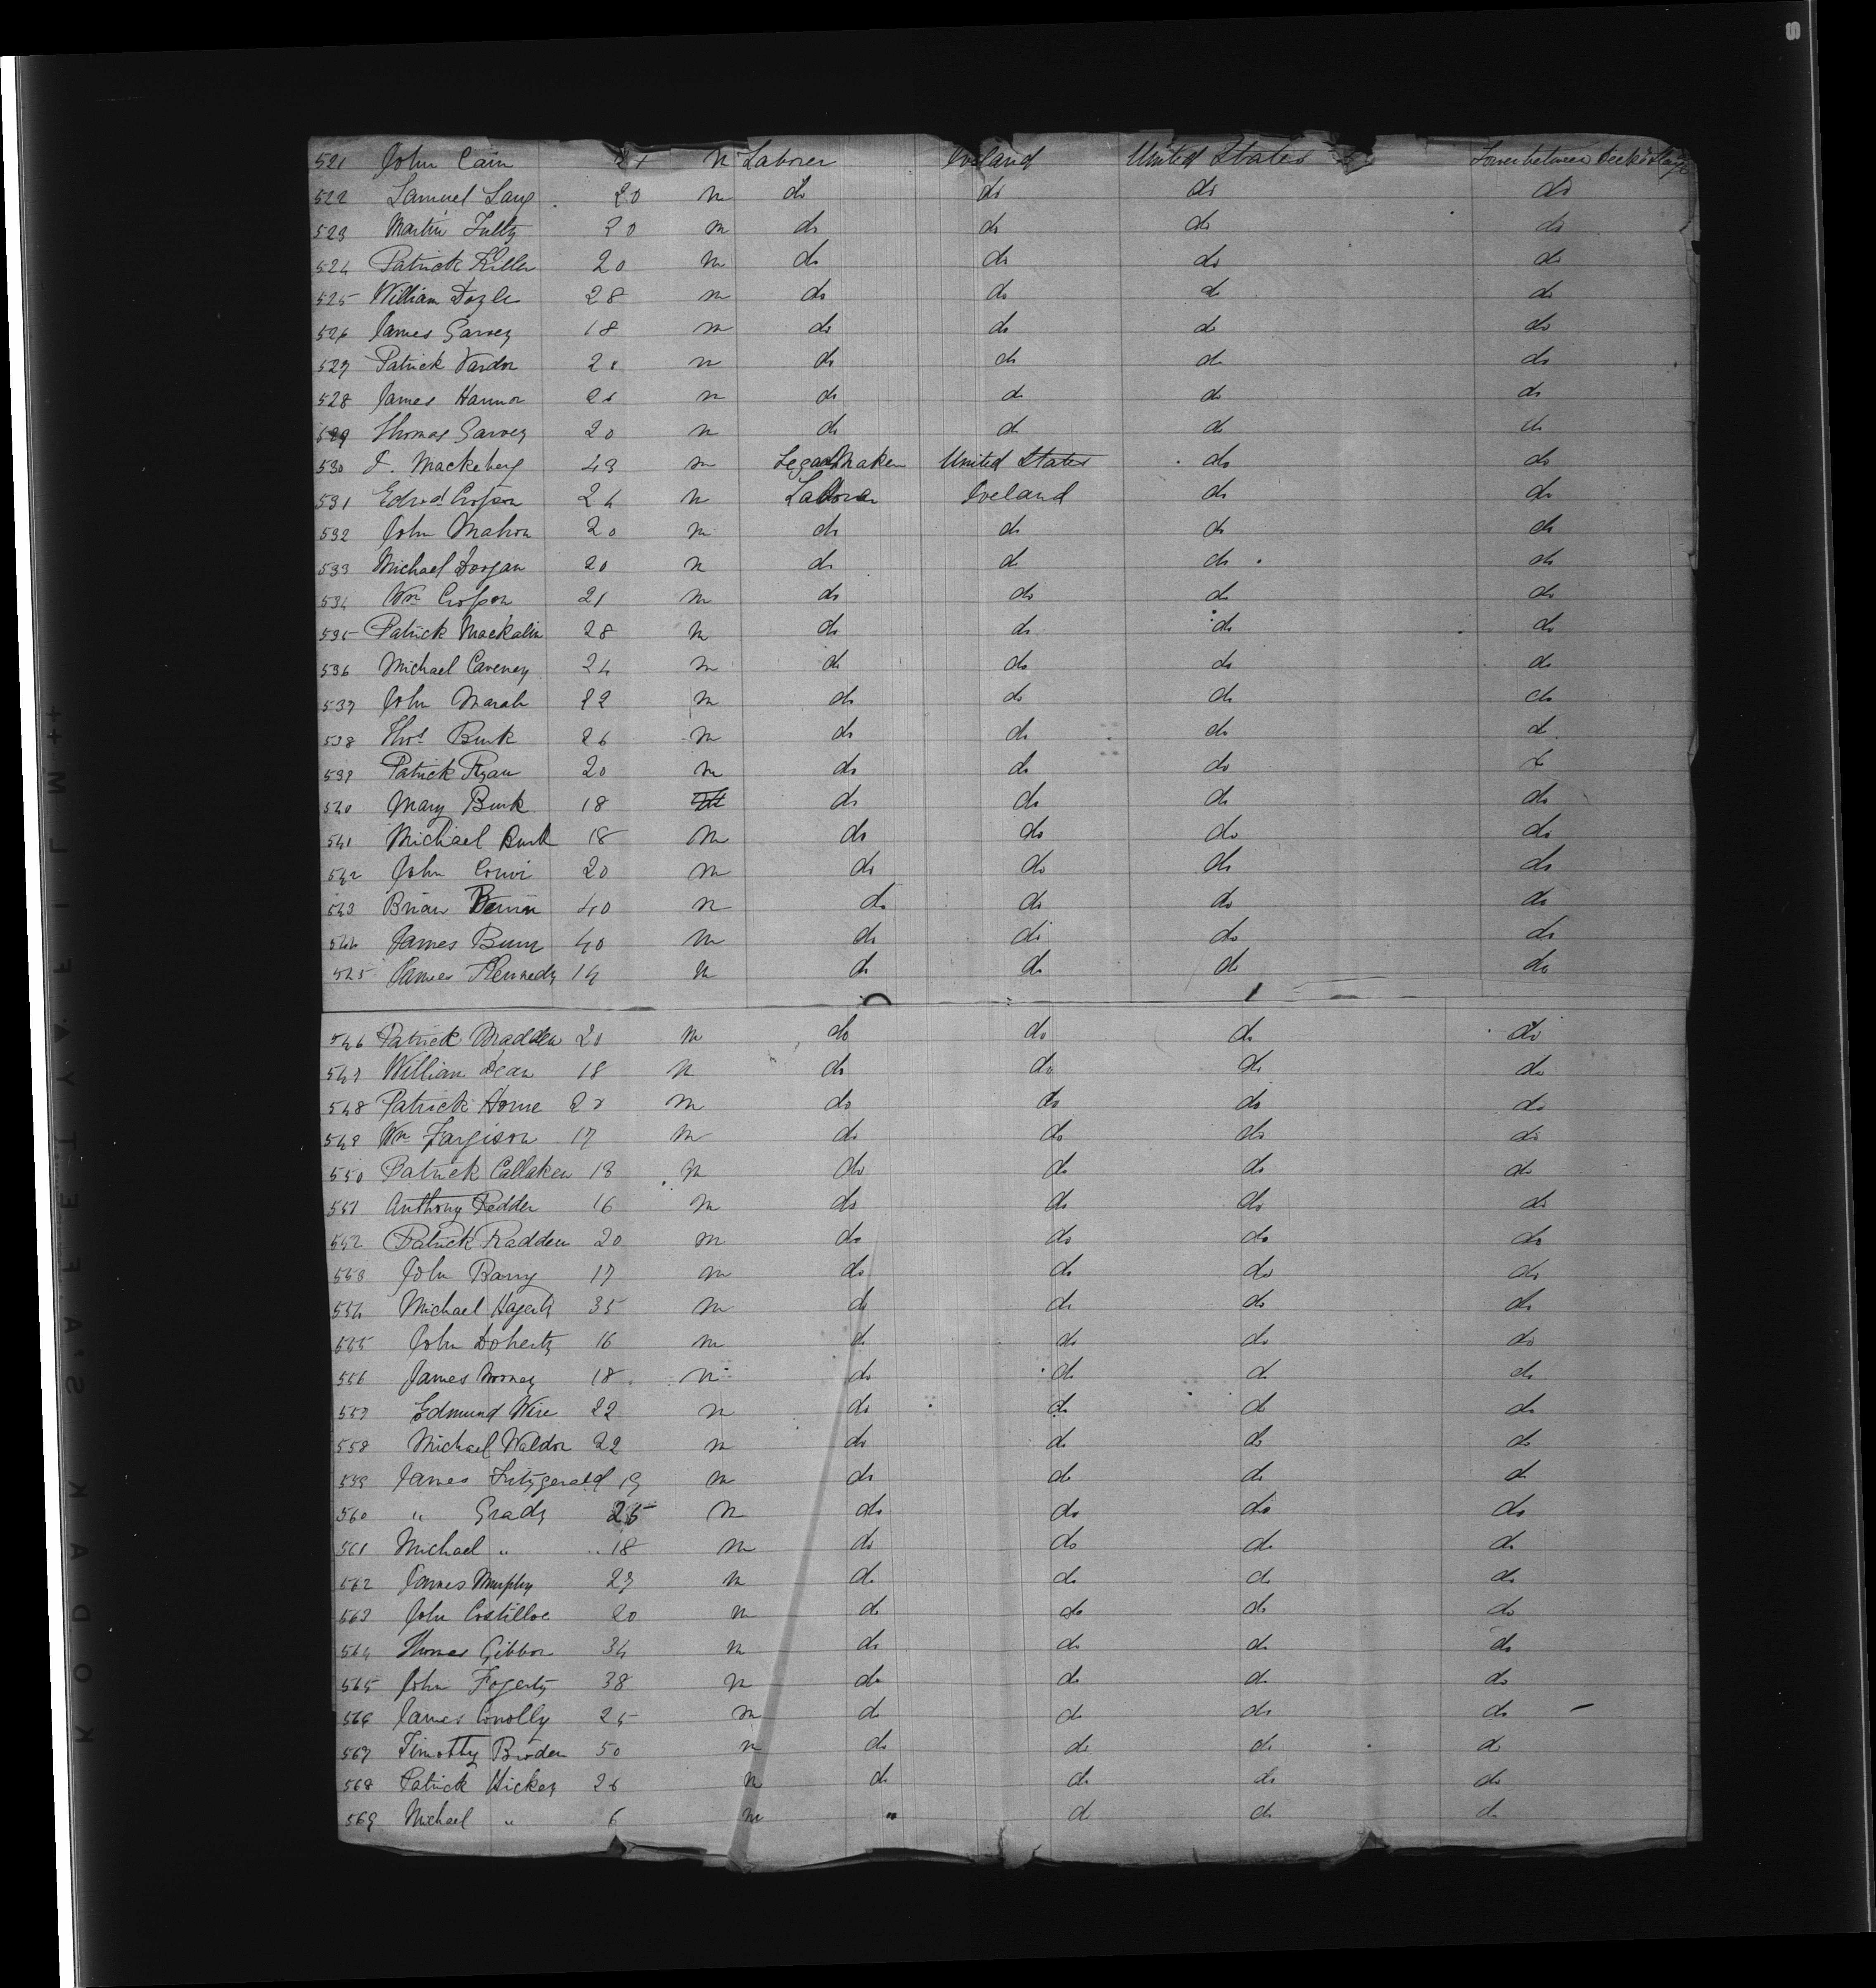 521 John Cain 21 m Laborer Ireland United States Lower between decks Stage
522 Samuel Lang 20 m do do do do
523 Martin Fulty 20 m do do do do
524 Patrick Killer 20 m do do do do
525 William Dogle 28 m do do do do
526 James Garvey 18 m do do do do
527 Patrick Vardon 21 m do do do do
528 James Hannon 26 m do do do do
529 Thomas Garvey 20 m do do do do
530 J. Mackeberg 43 m Segar Maker United States do do
531 Edwd Crosson 24 m Laborer Ireland do do
532 John Mahon 20 m do do do do
533 Michael Dorgan 20 m do do do do
534 Wm Crosson 21 m do do do do
535 Patrick Mackalin 28 m do do do do
536 Michael Caveney 24 m do do do do
537 John Marah 22 m do do do do
538 Thos Burk 26 m do do do do
539 Patrick Ryan 20 m do do do do
540 Mary Burk 18 do do do do
541 Michael Burk 18 m do do do do
542 John Convi 20 m do do do do
543 Brian 40 m do do do do
544 James Burn 40 m do do do do
545 James Kennedy 14 m do do do do
546 Patrick Madden 20 m do do do do
547 William Dean 18 m do do do do
548 Patrick Horne 22 m do do do do
549 Wm Fargison 17 m do do do do
550 Patrick Callaken 18 m do do do do
551 Anthony Redder 16 m do do do do
552 Patrick Radden 20 m do do do do
553 John Barry 17 m do do do do
554 Michael Hagerty 35 m do do do do
555 John Doherty 16 m do do do do
556 James Mooney 18 m do do do do
557 Edmund Wire 22 m do do do do
558 Michael Waldon 22 m do do do do
559 James Fitzgerald 19 m do do do do
560 " Grady 25 m do do do do
561 Michael " 18 m do do do do
562 James Murphy 27 m do do do do
563 John Costilloe 20 m do do do do
564 Thomas Gibbon 34 m do do do do
565 John Fogerty 38 m do do do do
566 James Conolly 25 m do do do do
567 Timothy Broden 50 m do do do do
568 Patrick Hickey 26 m do do do do
569 Michael " 6 m " do do do
KODAK SAFETY FILM